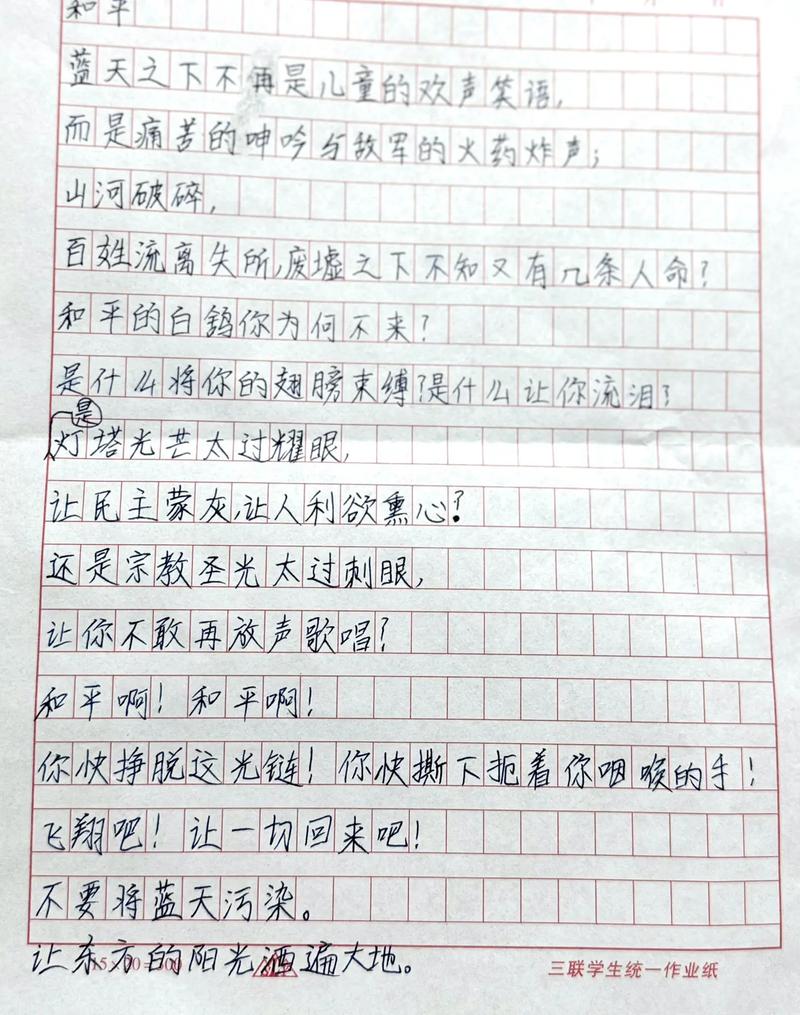 和平
蓝天之下不再是儿童的欢声笑语,
而是痛苦的呻吟与敌军的火药炸声;
山河破碎,
百姓流离失所,废墟之下不知又有几条人命?
和平的白鸽你为何不来?
是什么将你的翅膀束缚?是什么让你流泪?
是灯塔光芒太过耀眼,
让民主蒙灰,让人利欲熏心?
还是宗教圣光太过刺眼,
让你不敢再放声歌唱?
和平啊!和平啊!
你快挣脱这光链!你快撕下扼着你咽喉的手!
飞翔吧!让一切回来吧!
不要将蓝天污染。
让东方的阳光洒遍大地。
三联学生统一作业纸